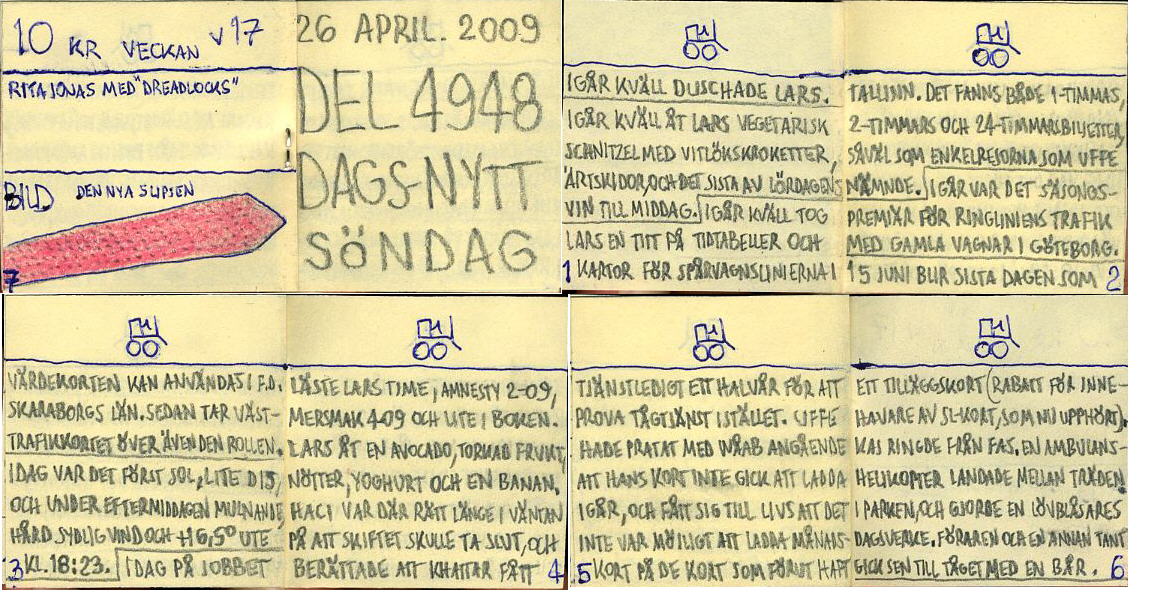 10 KR VECKAN v17
RITA JONAS MED "DREADLOCKS"
BILD DEN NYA SLIPSEN
7
26 APRIL. 2009
DEL 4948
DAGS-NYTT
SÖNDAG
IGÅR KVÄLL DUSCHADE LARS.
IGÅR KVÄLL ÅT LARS VEGETARISK
SCHNITZEL MED VITLÖKSKROKETTER,
ÄRTSKIDOR, OCH DET SISTA AV LÖRDAGENS
VIN TILL MIDDAG. IGÅR KVÄLL TOG
LARS EN TITT PÅ TIDTABELLER OCH
1 KARTOR FÖR SPÅRVAGNSLINIERNA I
TALLINN. DET FANNS BÅDE 1-TIMMAS,
2-TIMMARS OCH 24-TIMMARSBILJETTER,
SÅVÄL SOM ENKELRESORNA SOM UFFE
NÄMNDE. IGÅR VAR DET SÄSONGS-
PREMIÄR FÖR RINGLINIENS TRAFIK
MED GAMLA VAGNAR I GÖTEBORG.
15 JUNI BLIR SISTA DAGEN SOM 2
VÄRDEKORTEN KAN ANVÄNDAS I F.D.
SKARABORGS LÄN. SEDAN TAR VÄST-
TRAFIKKORTET ÖVER ÄVEN DEN ROLLEN.
IDAG VAR DET FÖRST SOL, LITE DIS,
OCH UNDER EFTERMIDDAGEN MULNANDE,
HÅRD SYDLIG VIND OCH +16,5° UTE
3 KL. 18:23. IDAG PÅ JOBBET
LÄSTE LARS TIME, AMNESTY 2-09,
MERSMAK 4-09 OCH UTE I BOKEN.
LARS ÅT EN AVOCADO, TORKAD FRUKT,
NÖTTER, YOGHURT OCH EN BANAN.
HACI VAR DÄR RÄTT LÄNGE I VÄNTAN
PÅ ATT SKIFTET SKULLE TA SLUT, OCH
BERÄTTADE ATT KHATTAR FÅTT 4
TJÄNSTLEDIGT ETT HALVÅR FÖR ATT
PROVA TÅGTJÄNST ISTÄLLET. UFFE
HADE PRATAT MED WÅAB ANGÅENDE
ATT HANS KORT INTE GICK ATT LADDA
IGÅR, OCH FÅTT SIG TILL LIVS ATT DET
INTE VAR MÖJLIGT ATT LADDA MÅNADS-
5 KORT PÅ DE KORT SOM FÖRUT HAFT
ETT TILLÄGGSKORT (RABATT FÖR INNE-
HAVARE AV SL-KORT, SOM NU UPPHÖRT).
KAJ RINGDE FRÅN FAS. EN AMBULANS-
HELIKOPTER LANDADE MELLAN TRÄDEN
I PARKEN, OCH GJORDE EN LÖVBLÅSARES
DAGSVERKE. FÖRAREN OCH EN ANNAN TANT
GICK SEN TILL TÅGET MED EN BÅR. 6